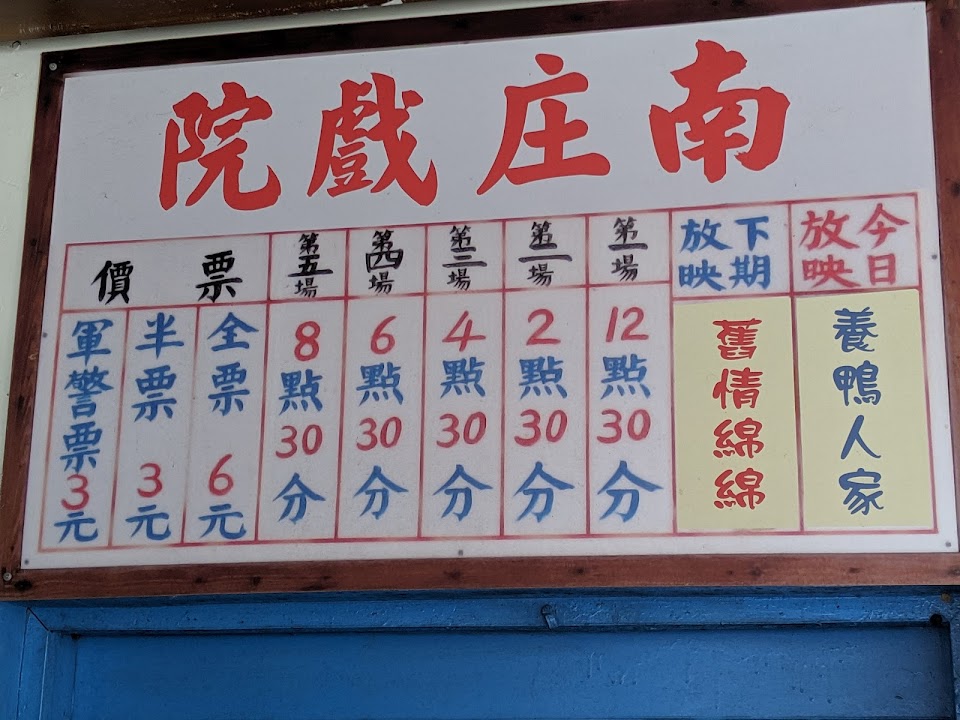 南庄戲院
今日放映
養鴨人家
下期放映
舊情綿綿
第一場
12點30分
第二場
2點30分
第三場
4點30分
第四場
6點30分
第五場
8點30分
票價
全票 6元
半票 3元
軍警票3元